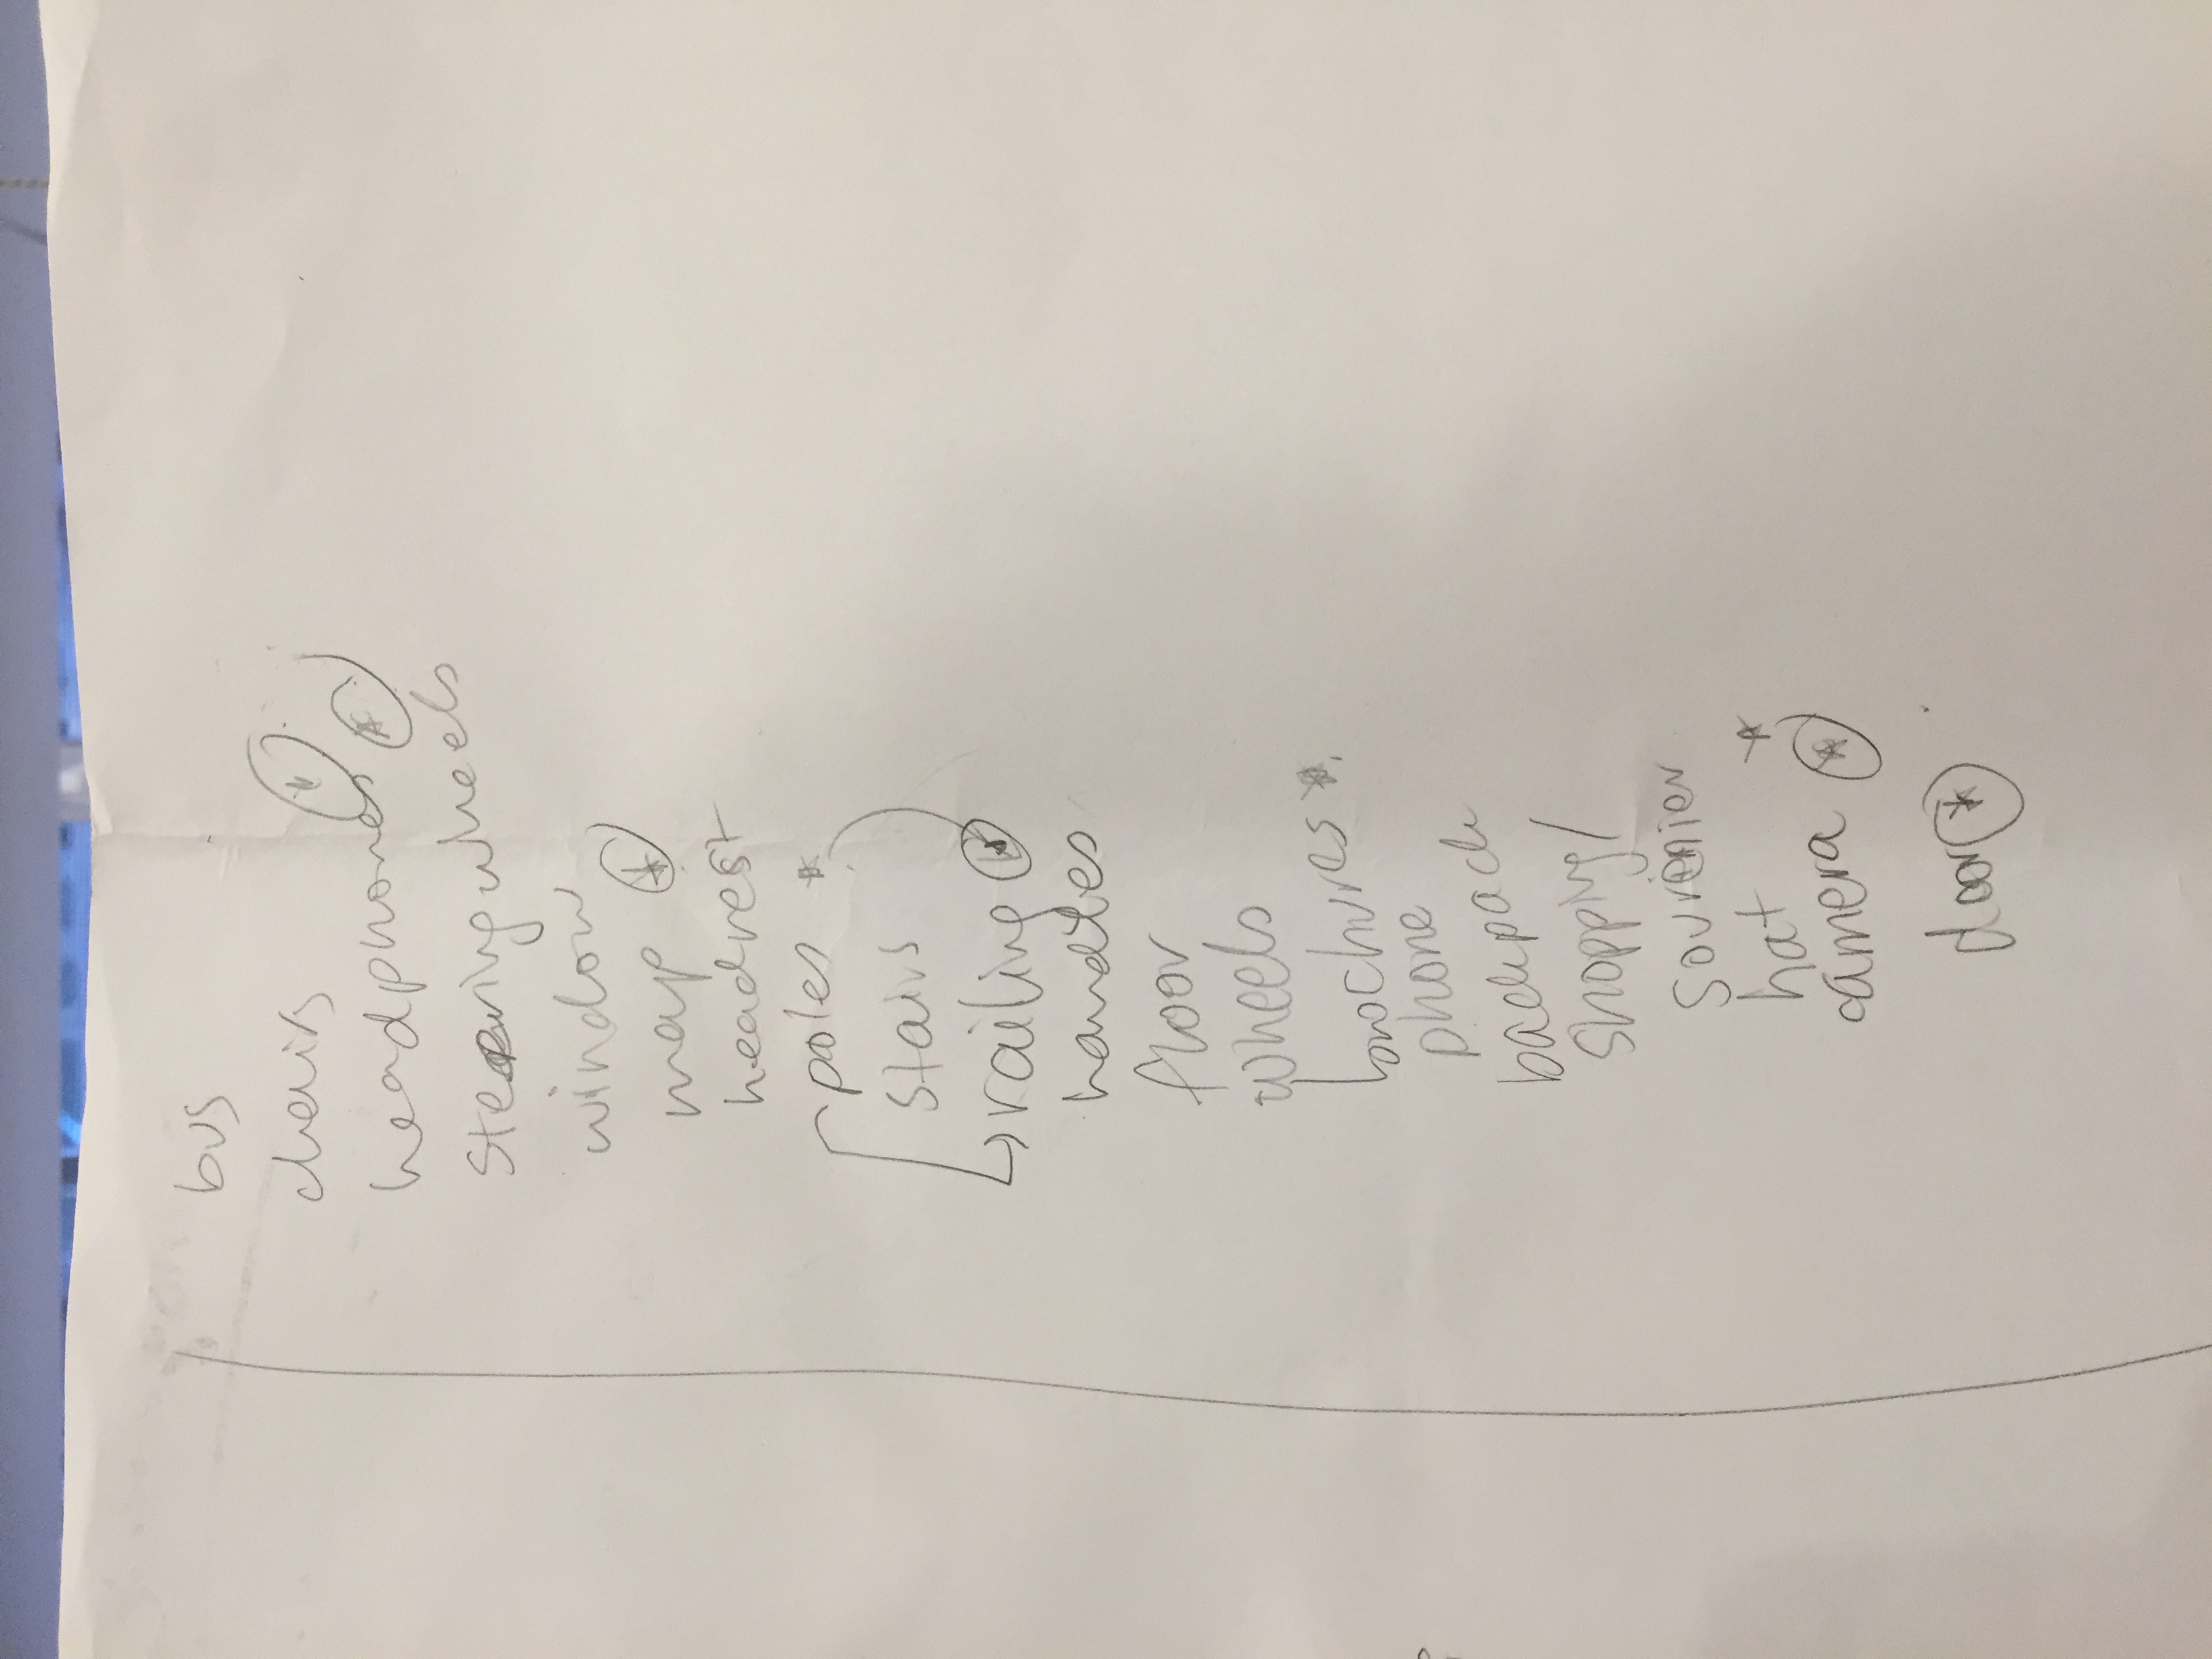 bus
chairs
headphones *
steering wheels
window
map *
headrest
poles *
stairs
railing *
handles
floor
wheels
brochures *
phone
backpack
shopping/
souvenier
hat *
camera *
door *